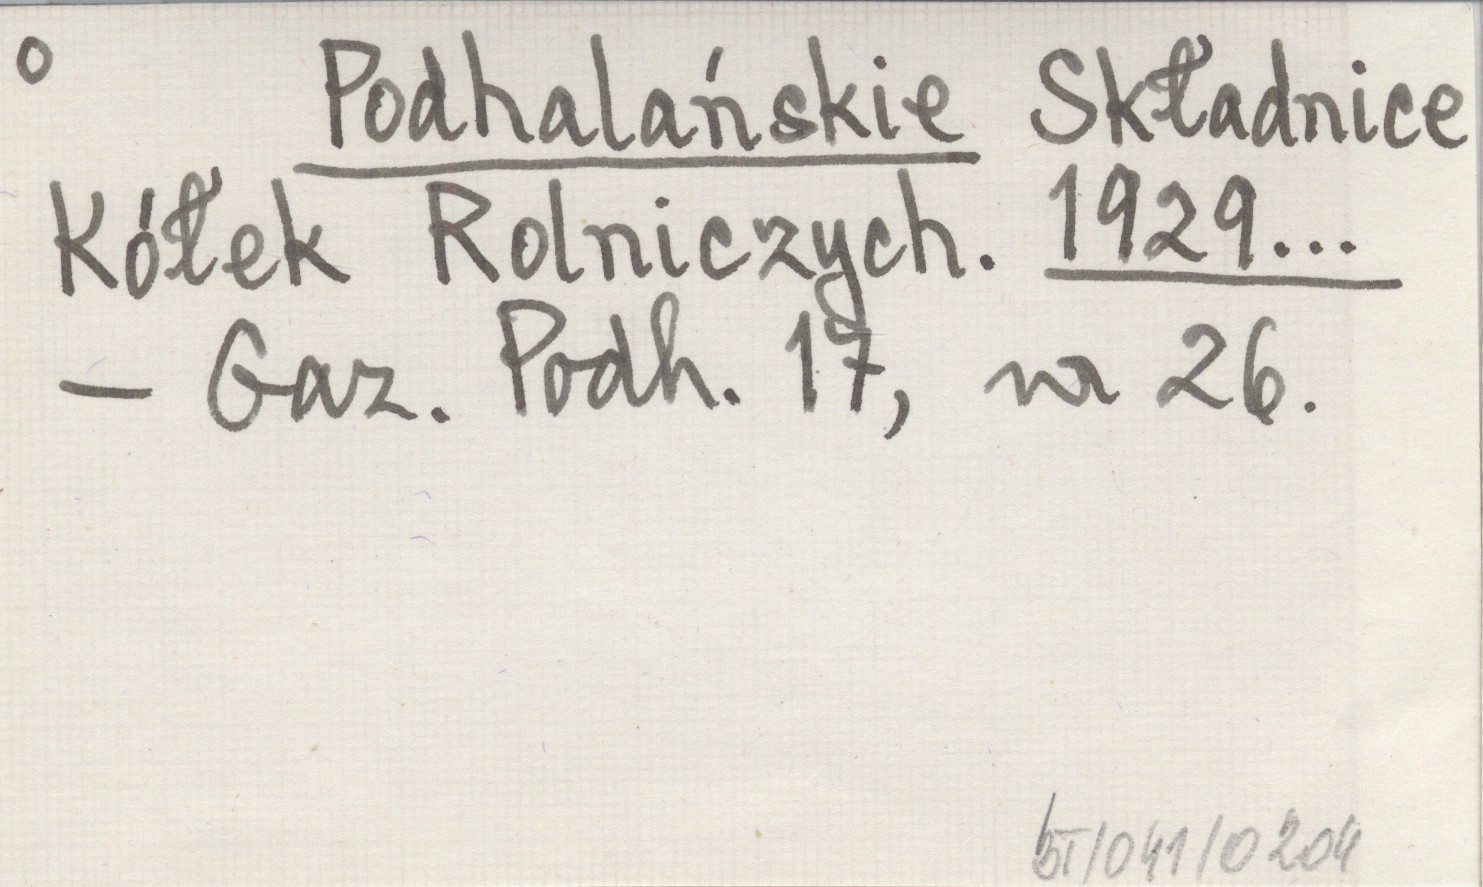 o Podhalańskie Składnice
Kółek Rolniczych. 1929...
— Gaz. Podh. 17, nr 26.
/041/0204